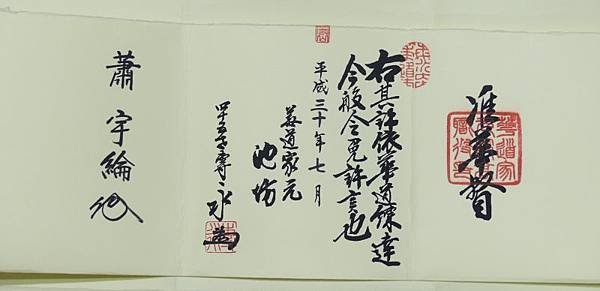 准華督
右其許依華道練達
今般令免許言也
平成三十年七月
華道家元
池坊
四十五世専永
蕭宇綸